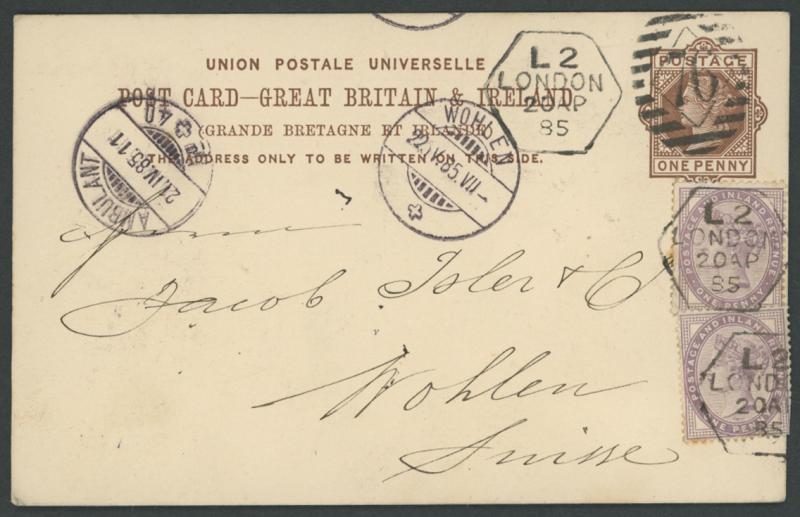 UNION POSTALE UNIVERSELLE
POST CARD—GREAT BRITAIN & IRELAND
(GRANDE BRETAGNE ET IRLANDE)
THE ADDRESS ONLY TO BE WRITTEN ON THIS SIDE.
L 2
LONDON
20 AP
85
POSTAGE
76
ONE PENNY
AMBULANT
21.IV.85.11
40
WOHLEN
22.IV.85.VII–
L 2
LONDON
20 AP
85
POSTAGE AND INLAND REVENUE
ONE PENNY
L 2
LONDON
20 AP
85
POSTAGE AND INLAND
ONE PENNY
Jacob Isler & Co
Wohlen
Suisse